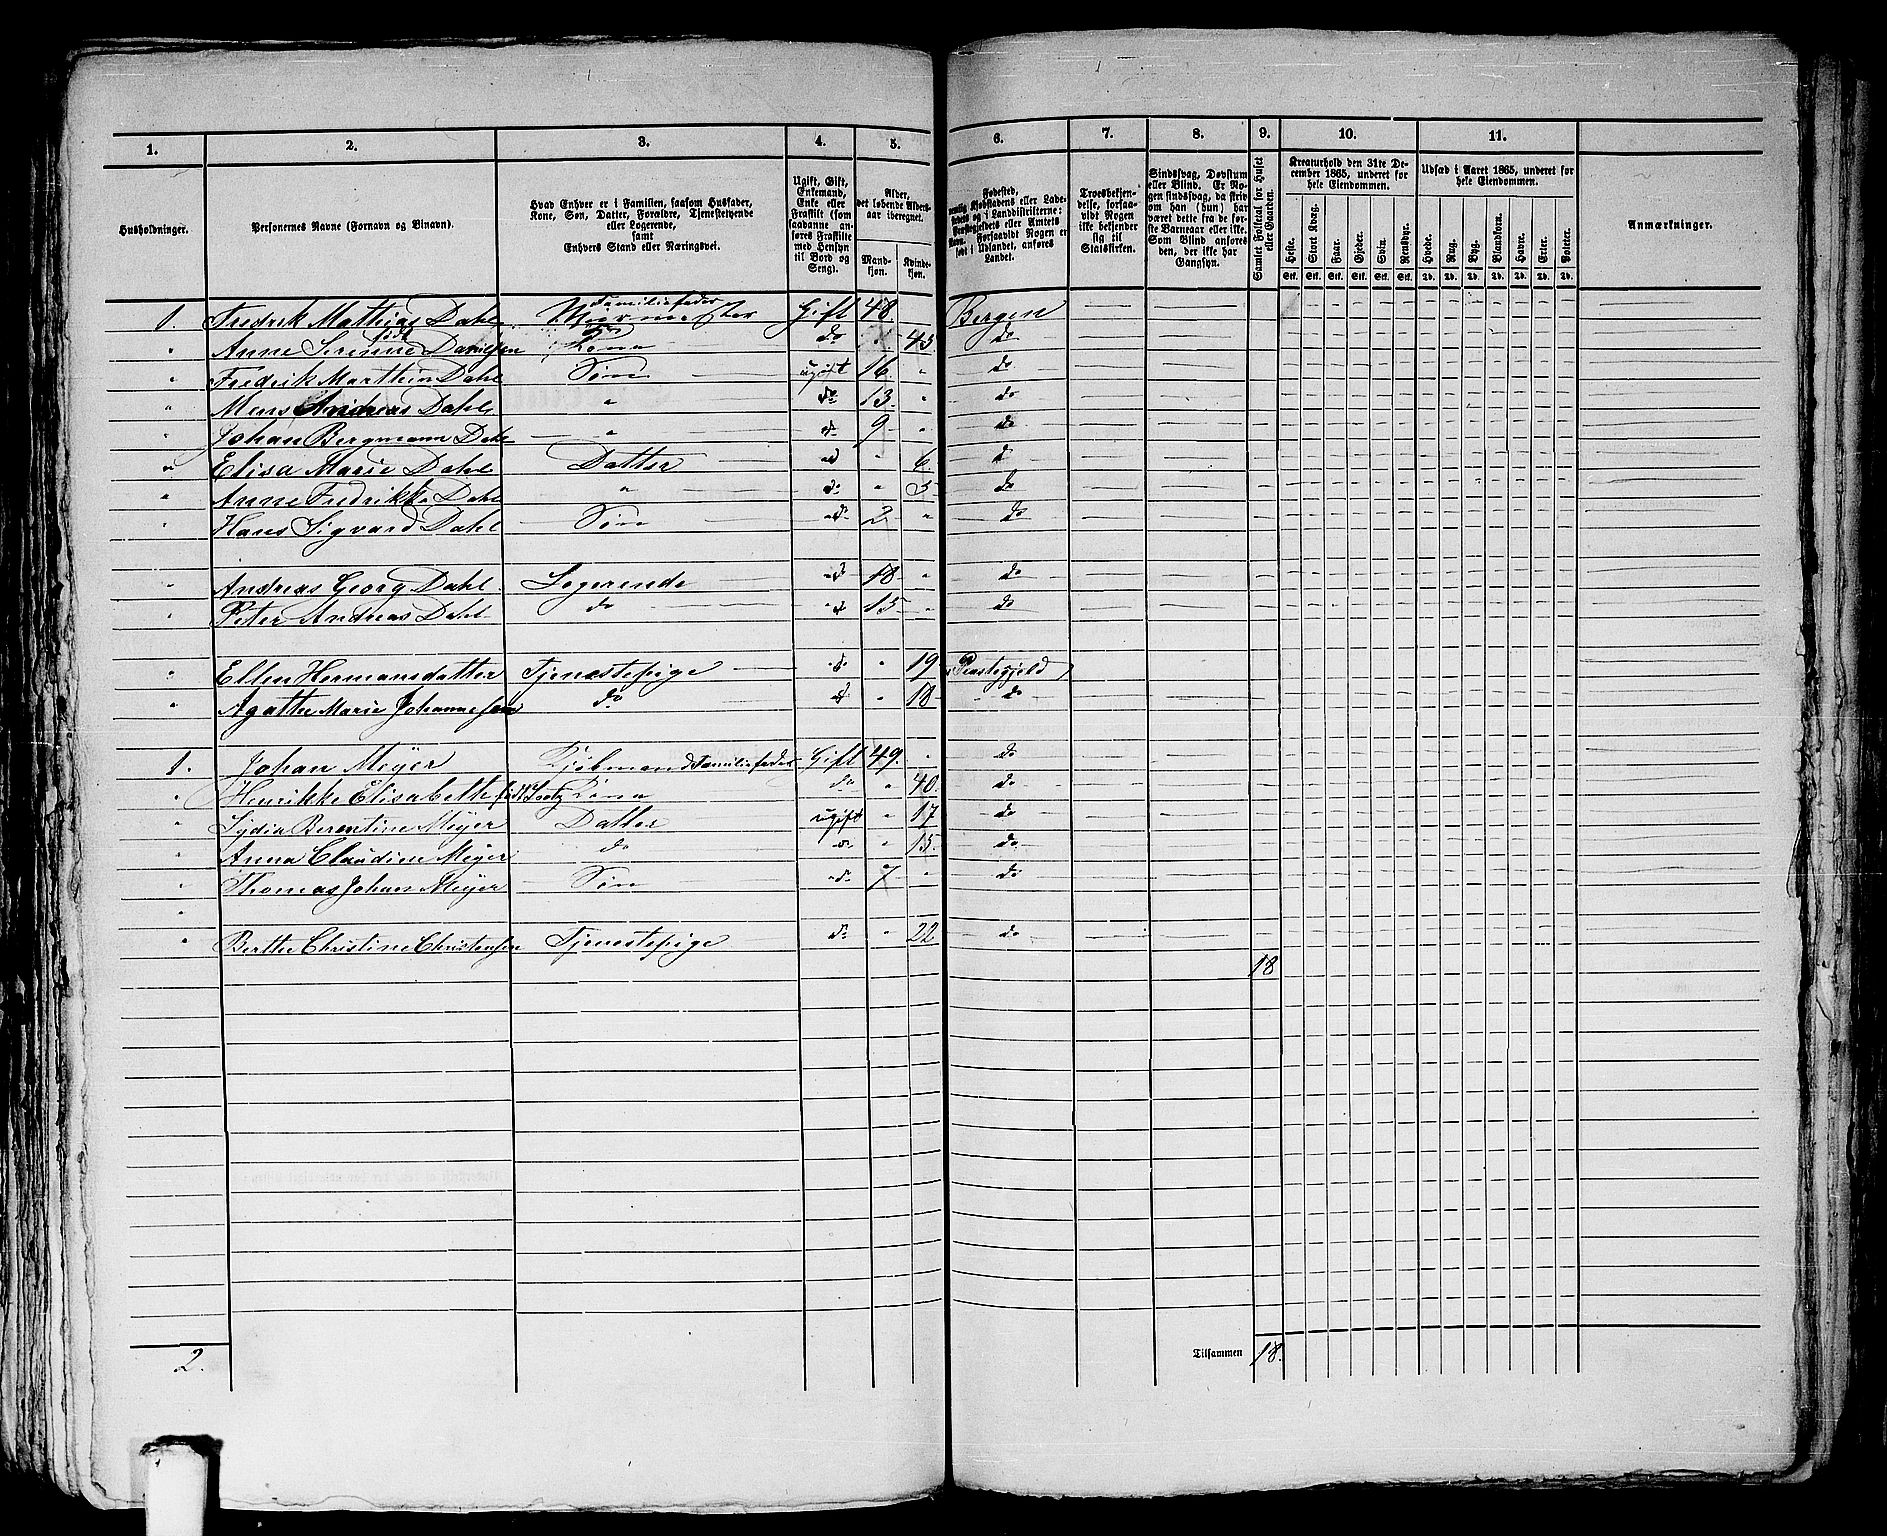 1. 2. 3. 4. 5. 6. 7. 8. 9. 10. 11.
Husholdninger.
Personernes Navne (Fornavn og Binavn).
Hvad Enhver er i Familien, saasom Husfader,
Kone, Søn, Datter, Forældre, Tjenestetyende
eller Logerende,
samt
Enhvers Stand eller Næringsvei.
Ugift, Gift,
Enkemand,
Enke eller
Fraskilt (som
saadanne an-
føres Fraskilte
med Hensyn
til Bord og
Seng).
Alder,
det løbende Alders-
aar iberegnet.
Mand-
kjøn.
Kvinde-
kjøn.
Fødested,
nemlig Kjøbstadens eller Lade-
stedets og i Landdistrikterne:
Præstegjeldets eller Amtets
Navn. Forsaavidt Nogen er
født i Udlandet, anføres
Landet.
Troesbekjen-
delse, forsaa-
vidt Nogen
ikke bekjender
sig til
Statskirken.
Sindssvag, Døvstum
eller Blind. Er No-
gen sindssvag, da skrives
om han (hun) har
været dette fra de før-
ste Barneaar eller ikke.
Som Blind anføres
den, der ikke har
Gangsyn.
Samlet Folketal for Huset
eller Gaarden.
Kreaturhold den 31te De-
cember 1865, underet for
hele Eiendommen.
Heste. Stort Kvæg. Faar. Gjeder. Svin. Rensdyr.
Stk. Stk. Stk. Stk. Stk. Stk.
Udsæd i Aaret 1865, underet for
hele Eiendommen.
Hvede. Rug. Byg. Blandkorn. Havre. Erter. Poteter.
Td. Td. Td. Td. Td. Td. Td.
Anmærkninger.
Familiefader
1. Fredrik Mathias Dahl Muurmester Gift 48 Bergen
" Anne Serine født Danielsen Kone do 45 do
" Fredrik Marthin Dahl Søn ugift 16 " do
" Mens Andreas Dahl " do 13 " do
" Johan Bergmann Dahl " do 9 " do
" Elisa Marie Dahl Datter do " 6 do
" Anne Fredrikke Dahl " do " 3 do
" Hans Sigvard Dahl Søn do 2 " do
" Andreas Georg Dahl Logerende do 18 " do
" Peter Andreas Dahl do do 15 " do
" Ellen Hermansdatter Tjenestepige do " 19
" Agathe Marie Johannesen do do " 18 do
1. Johan Meyer Kjøbmand Familiefader Gift 49. " do
" Henrikke Elisabeth født Kone do " 40 do
" Lydia Berentine Meyer Datter ugift " 17 do
" Anna Claudine Meyer do do " 15 do
" Thomas Johan Meyer Søn do 7 " do
"
" Berthe Christine Christensen Tjenestepige do " 22 do
18
2. Tilsammen 18.